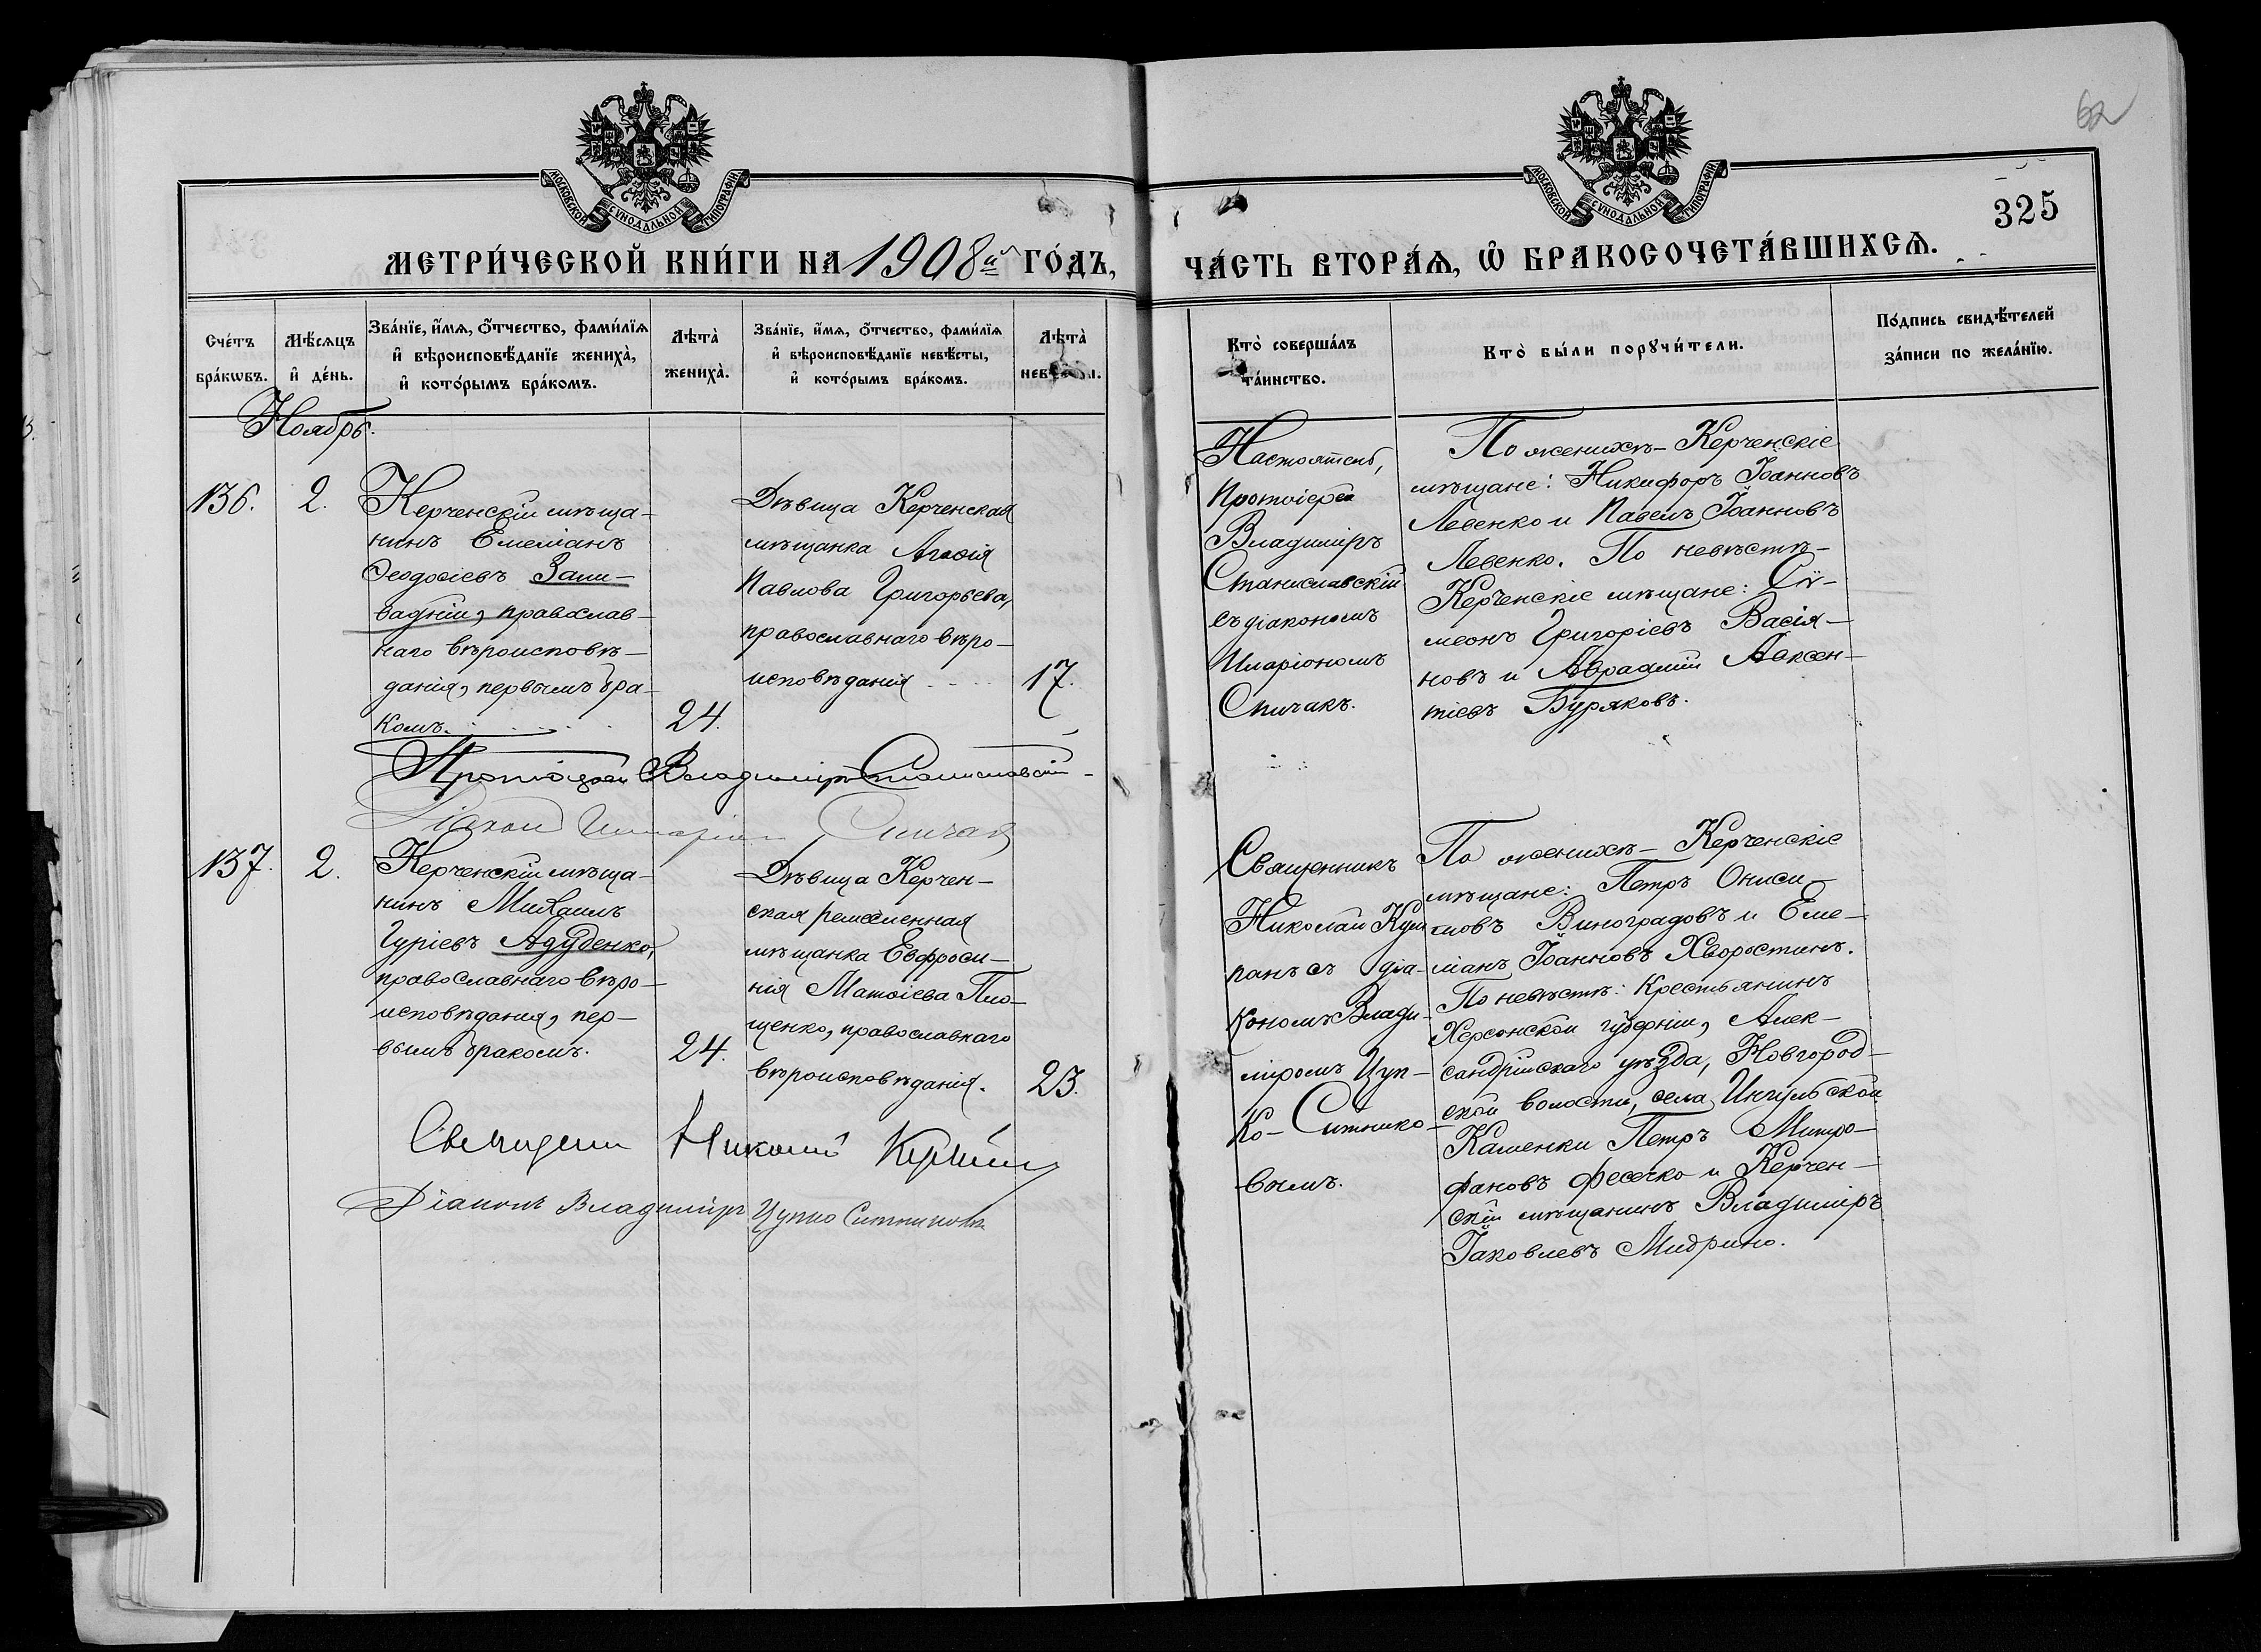 62
325
МОСКОВСКОЙ СѴНОДАЛЬНОЙ ТИПОГРАФІИ
МОСКОВСКОЙ СѴНОДАЛЬНОЙ ТИПОГРАФІИ
МЕТРИ́ЧЕСКОЙ КНИ́ГИ НА 1908й ГО́ДЪ,
ЧА́СТЬ ВТОРА́Ѧ, Ѽ БРАКОСОЧЕТА́ВШИХСѦ.
Сче́тъ бра́кωвъ.
Мѣ́сѧцъ и҆ де́нь.
Зва́нїе, и҆́мѧ, о҆́тчество, фами́лїѧ
и҆ вѣроисповѣ́данїе жениха̀,
и҆ кото́рымъ бра́комъ.
Лѣта̀ жениха̀.
Зва́нїе, и҆́мѧ, о҆́тчество, фами́лїѧ
и҆ вѣроисповѣ́данїе невѣ́сты,
и҆ кото́рымъ бра́комъ.
Лѣта̀
Кто̀ соверша́лъ
та́инство.
Кто̀ бы́ли порꙋчи́тели.
По́дпись свидѣ́телей
за́писи по жела́нїю.
Ноябрь.
136.
2.
Керченскій мѣща-
нинъ Емеліанъ
Ѳеодосіевъ Запи-
вадній, православ-
наго вѣроисповѣ-
данія, первымъ бра-
комъ.
24.
Дѣвица Керченская
мѣщанка Агаѳія
Павлова Григорьева,
православнаго вѣро-
исповѣданія
17.
Настоятель,
Протоіерей
Владиміръ
Станиславскій
съ діакономъ
Иларіономъ
Спичакъ.
По женихѣ - Керченскіе
мѣщане: Никифоръ Іоанновъ
Левенко и Павелъ Іоанновъ
Левенко. По невѣстѣ -
Керченскіе мѣщане: Сѵ-
меонъ Григоріевъ Васія-
новъ и Авраамій Авксен-
тіевъ Буряковъ.
Протоіерей Владиміръ Станиславскій
Діаконъ Иларіонъ Спичакъ
137.
2.
Керченскій мѣща-
нинъ Михаилъ
Гуріевъ Адуденко,
православнаго вѣро-
исповѣданія, пер-
вымъ бракомъ.
24.
Дѣвица Керчен-
ская ремесленная
мѣщанка Евфроси-
нія Матѳіева Пло-
щенко, православнаго
вѣроисповѣданія.
23.
Священникъ
Николай Кум
панъ съ діа-
кономъ Влади-
міромъ Цуп-
ко-Ситнико-
вымъ.
По женихѣ - Керченскіе
мѣщане: Петръ Ониси-
мовъ Виноградовъ и Еме-
ліанъ Іоанновъ Хворостинъ.
По невѣстѣ: Крестьянинъ
Херсонской губерніи, Алек-
сандрійскаго уѣзда, Новгород-
ской волости, села Ингульской
Каменки Петръ Митро-
фановъ Фесечко и Керчен-
скій мѣщанинъ Владиміръ
Іаковлевъ Мидрино.
Священникъ Николай
Діаконъ Владиміръ Цупко Ситниковъ